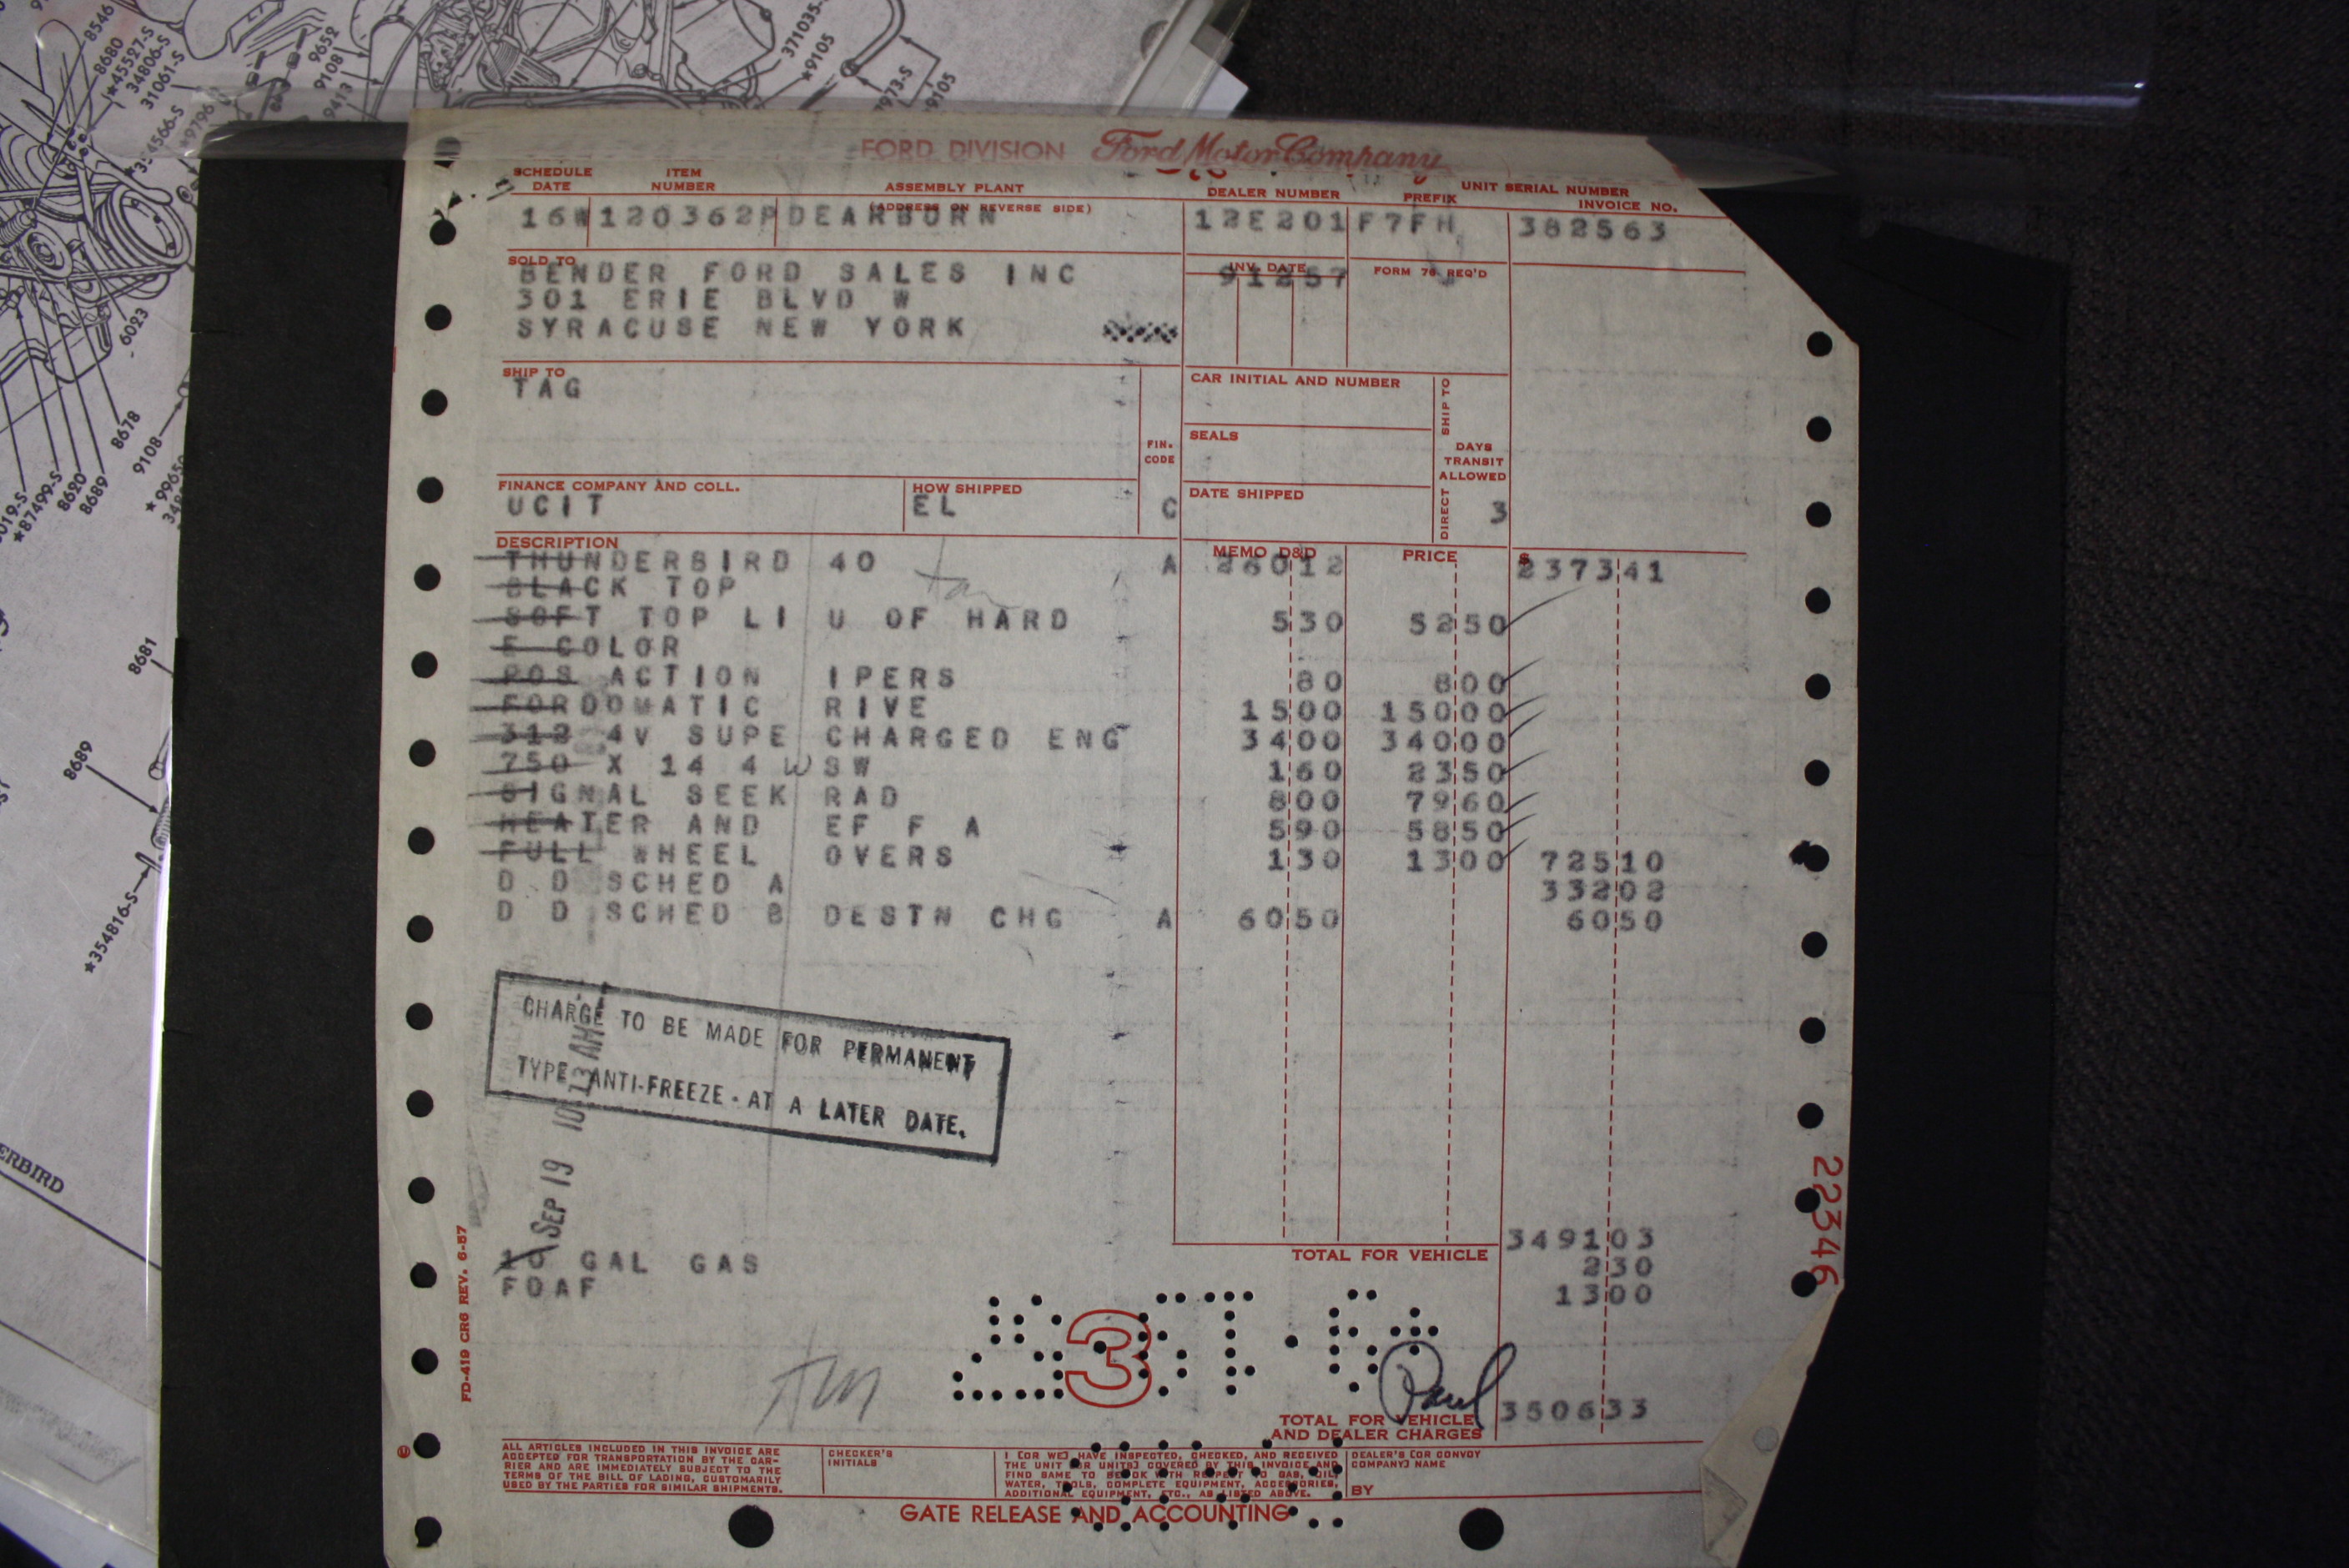 FORD DIVISION Ford Motor Company
SCHEDULE DATE ITEM NUMBER ASSEMBLY PLANT (ADDRESS ON REVERSE SIDE) DEALER NUMBER PREFIX UNIT SERIAL NUMBER INVOICE NO.
16W 120362P DEARBORN 12E201 F7FH 382563
SOLD TO INV. DATE FORM 76 REQ'D
BENDER FORD SALES INC 91257
301 ERIE BLVD W
SYRACUSE NEW YORK
SHIP TO CAR INITIAL AND NUMBER SHIP TO
TAG
SEALS
FIN. CODE DAYS TRANSIT ALLOWED
FINANCE COMPANY AND COLL. HOW SHIPPED DATE SHIPPED DIRECT
UCIT EL C 3
DESCRIPTION MEMO D&D PRICE $
THUNDERBIRD 40 A 26012 237341
BLACK TOP tan
SOFT TOP LI U OF HARD 530 5250
F COLOR
POS ACTION IPERS 80 800
FORDOMATIC RIVE 1500 15000
312 4V SUPE CHARGED ENG 3400 34000
750 X 14 4 W SW 160 2350
SIGNAL SEEK RAD 800 7960
HEATER AND EF F A 590 5850
FULL WHEEL OVERS 130 1300 72510
D D SCHED A 33202
D D SCHED B DESTN CHG A 6050 6050
CHARGE TO BE MADE FOR PERMANENT
TYPE ANTI-FREEZE - AT A LATER DATE.
SEP 19 10 13 AM
TOTAL FOR VEHICLE 349103
10 GAL GAS 230
FOAF 1300
3
Paul
TOTAL FOR VEHICLE AND DEALER CHARGES 350633
ALL ARTICLES INCLUDED IN THIS INVOICE ARE
ACCEPTED FOR TRANSPORTATION BY THE CAR-
RIER AND ARE IMMEDIATELY SUBJECT TO THE
TERMS OF THE BILL OF LADING, CUSTOMARILY
USED BY THE PARTIES FOR SIMILAR SHIPMENTS.
CHECKER'S
INITIALS
I (OR WE) HAVE INSPECTED, CHECKED, AND RECEIVED
THE UNIT (OR UNITS) COVERED BY THIS INVOICE AND
FIND SAME TO BE OK WITH RESPECT TO GAS, OIL,
WATER, TOOLS, COMPLETE EQUIPMENT, ACCESSORIES,
ADDITIONAL EQUIPMENT, ETC., AS LISTED ABOVE.
DEALER'S (OR CONVOY
COMPANY) NAME
BY
GATE RELEASE AND ACCOUNTING
FD-419 CR6 REV. 6-57
22346
8546
8680
★45527-S
34806-S
31061-S
★354566-S
★9796
9652
9108
9413
371035-
★9105
9105
6023
8678
9108
8620
8689
★87499-S
8681
8689
★354816-S